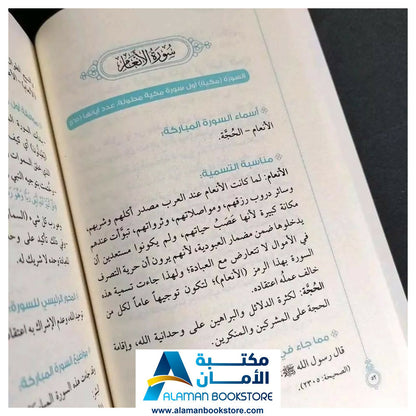 سورة الأنعام
السورة (مكية) أول سورة مكية مطولة، عدد آياتها
أسماء السورة المباركة:
الأنعام – الحُجَّة.
مناسبة التسمية:
الأنعام: لما كانت الأنعام عند العرب مصدر أكلهم وشربهم،
وسائر دروب رزقهم، ومواصلاتهم، وثرواتهم، تبوَّأت عندهم
مكانة كبيرة لأنها عَصَبُ حياتهم، ولم يكونوا مستعدين أن
يدخلوها ضمن مضمار العبودية، لأنهم يرون أن حرية التصرف
في الأموال لا تتعارض مع العبادة؛ ولهذا جاءت تسمية هذه
السورة بهذا الرمز (الأنعام)؛ لتكون توجيهًا عامًا لكل من
خالف عمله اعتقاده.
الحُجَّة: لكثرة الدلائل والبراهين على وحدانية الله، وإقامة
الحجة على المشركين والمنكرين.
مما جاء في
قال رسول الله ﷺ
(الصحيحة: ٢٣٠٥).
٥٢
المحور الرئيسي للسورة:
توحيد الله، وعدم الإشراك به
مواضيع السورة المباركة:
مكتبة
الأمان
ALAMAN BOOKSTORE
www.alamanbookstore.com